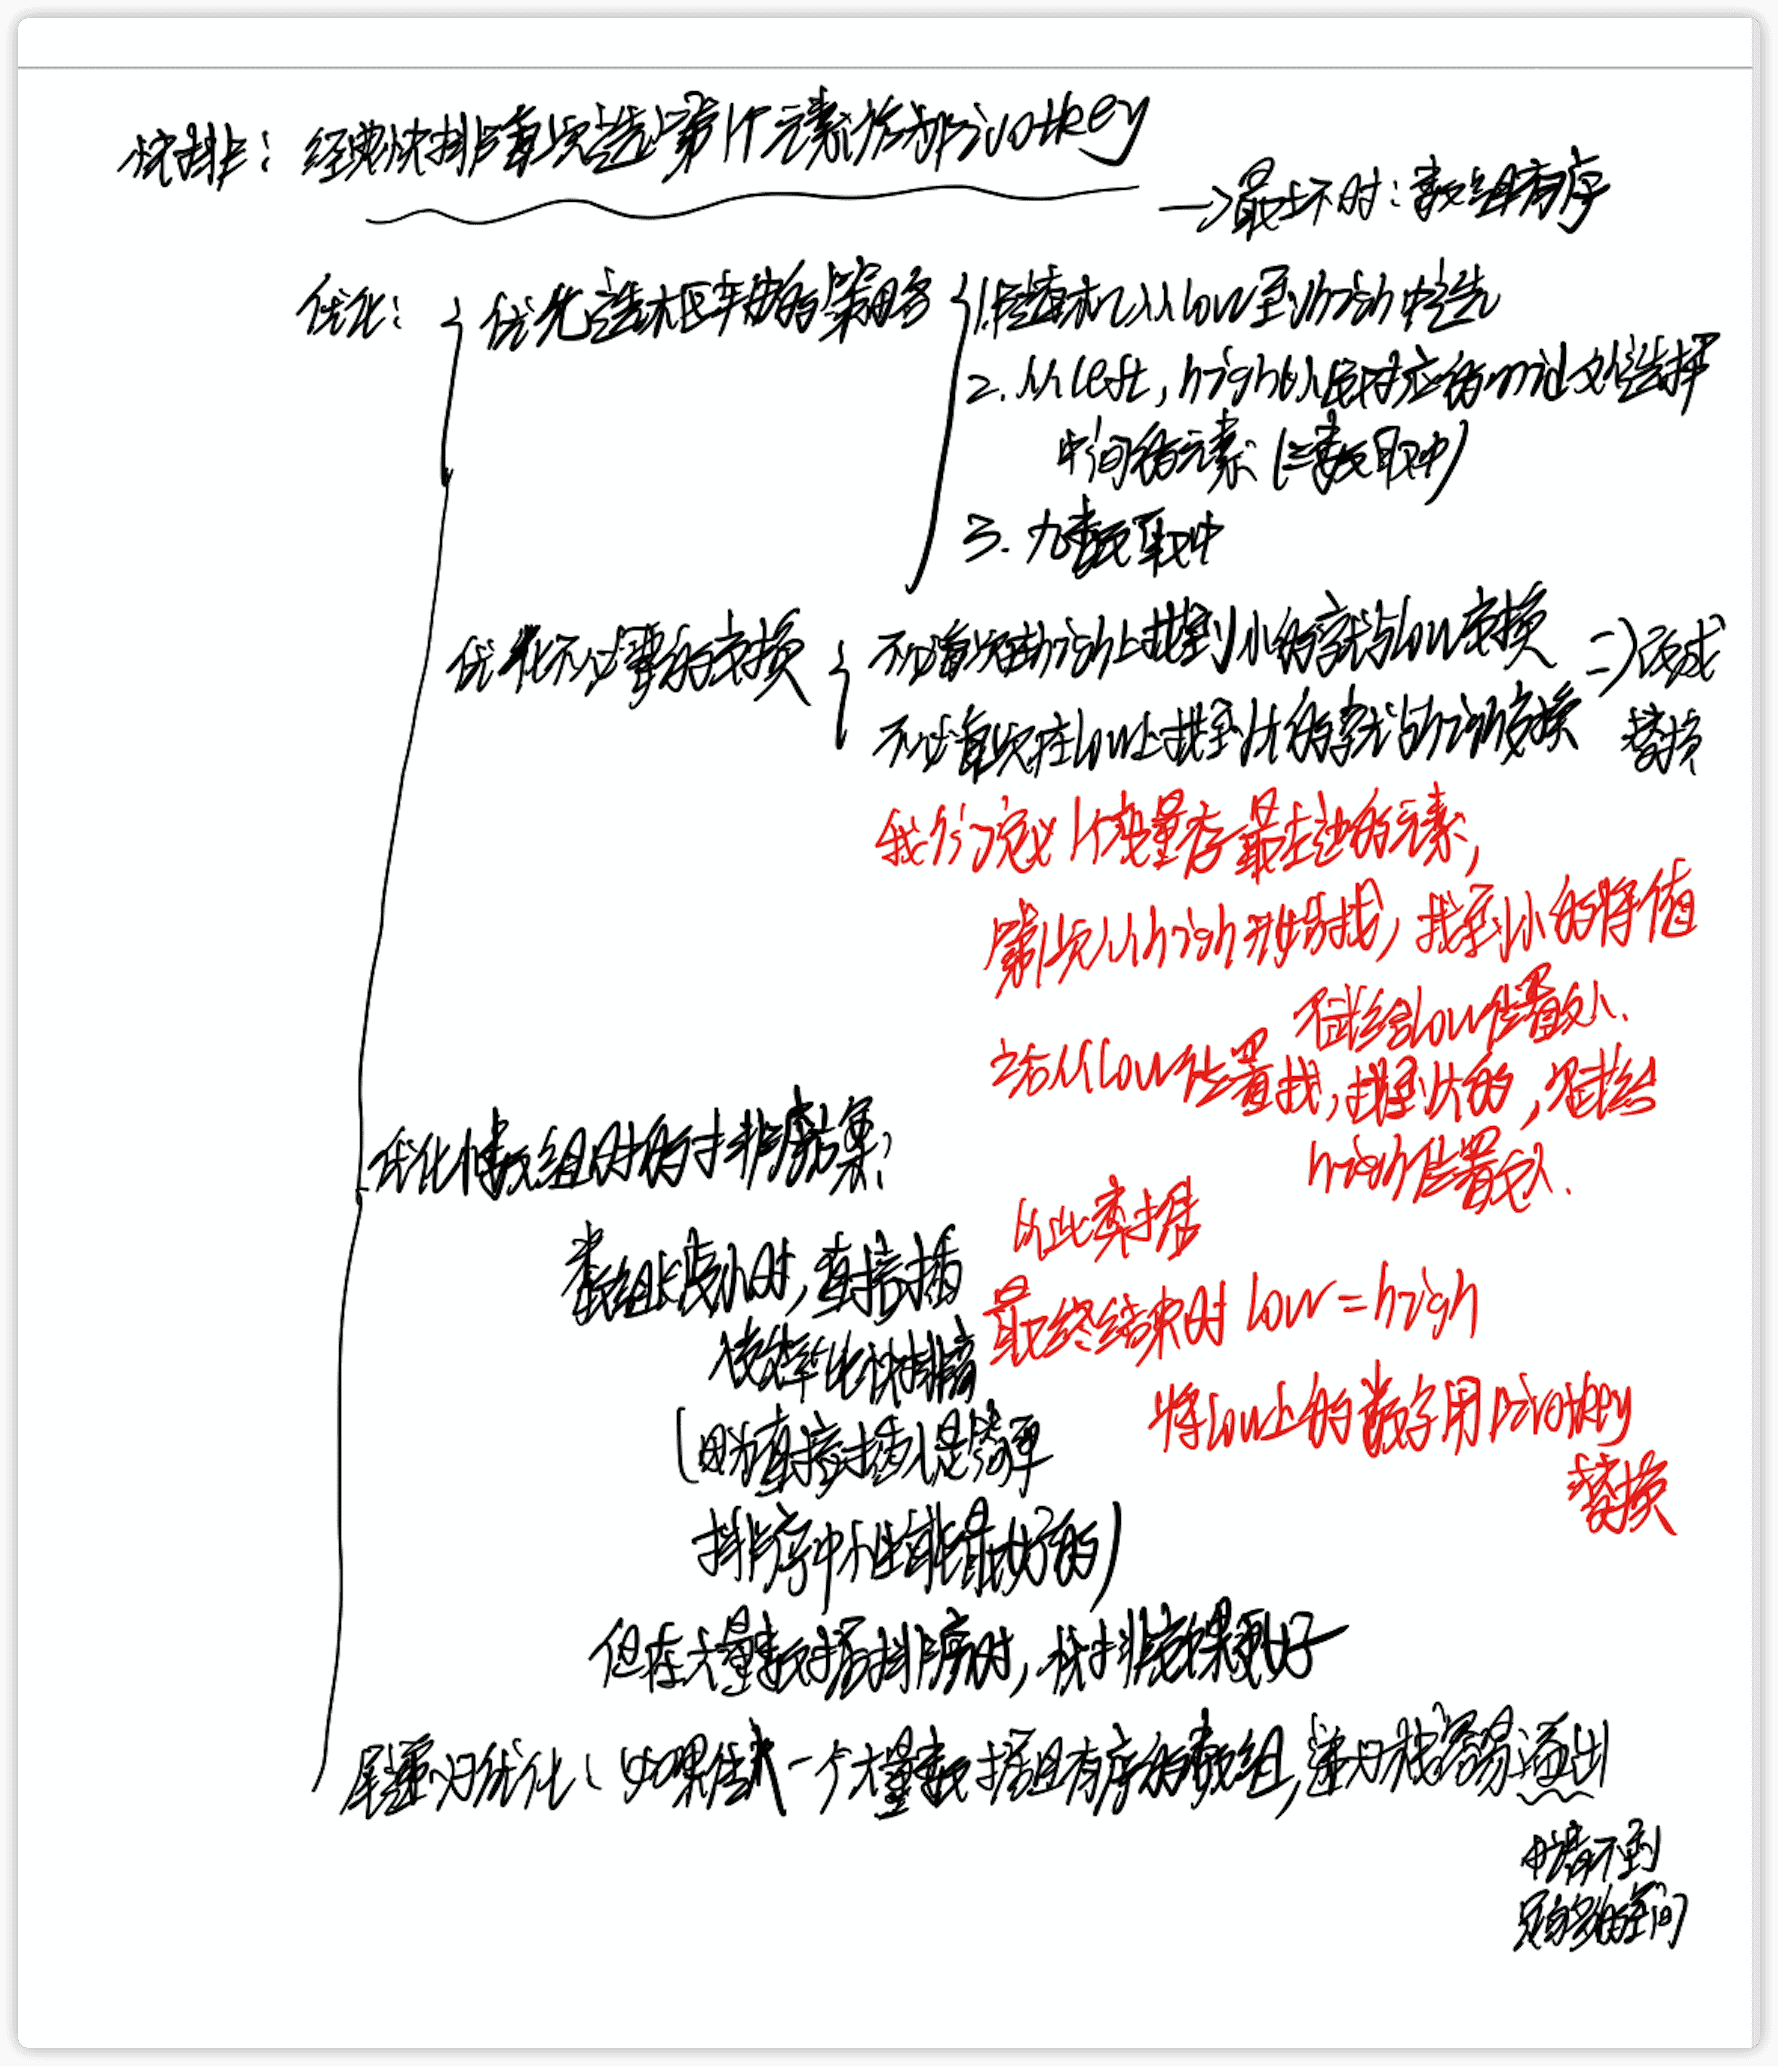 快排：经典快排每次选择第1个元素作为pivotkey
→最坏时：数组有序
优化：
优先选取枢轴的策略
1.随机从low到high中选
2.从left，high以及对应的mid处选择
中间的元素（三数取中）
3.九数取中
优化不必要的交换
不必每次在high上找到小的就与low交换
不必每次在low上找到大的就与high交换
=>改成
替换
我们定义1个变量存最左边的元素，
第1次从high开始找，找到小的将值
赋给low位置处．
之后从low位置找，找到大的，赋给
high位置处．
以此类推
最终结束时low=high
将low上的数字用pivotkey
替换
优化小数组时的排序方案：
数组长度小时，直接插
入效率比快排高
（因为直接插入是简单
排序中性能最好的）
但在大量数据排序时，快排效果更好
尾递归优化：如果传入一个大量数据且有序的数组，递归栈容易溢出
申请不到
足够多的空间